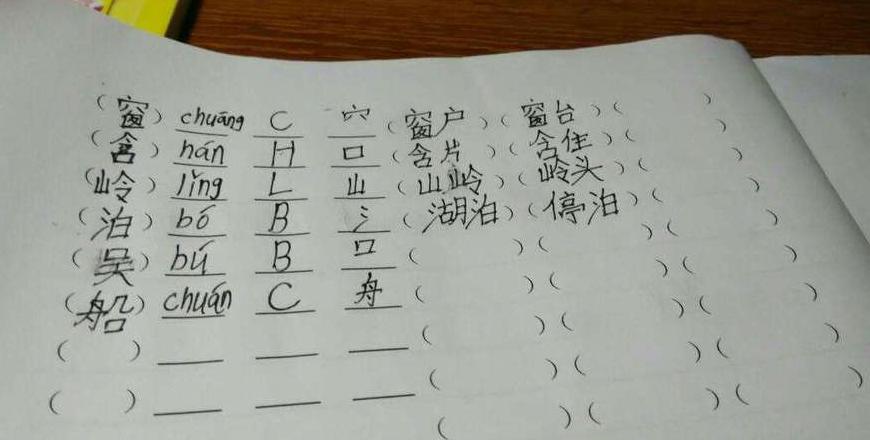 (窗) chuāng C 穴 (窗户) (窗台) ( )
(含) hán H 口 (含片) (含住) ( )
(岭) lǐng L 山 (山岭) (岭头) ( )
(泊) bó B 氵 (湖泊) (停泊) ( )
(吴) bú B 口 ( ) ( ) ( )
(船) chuán C 舟 ( ) ( ) ( )
( ) ___ ___ ___ ( ) ( ) ( )
( ) ___ ___ ___ ( ) ( ) ( )
( ) ( ) ( )